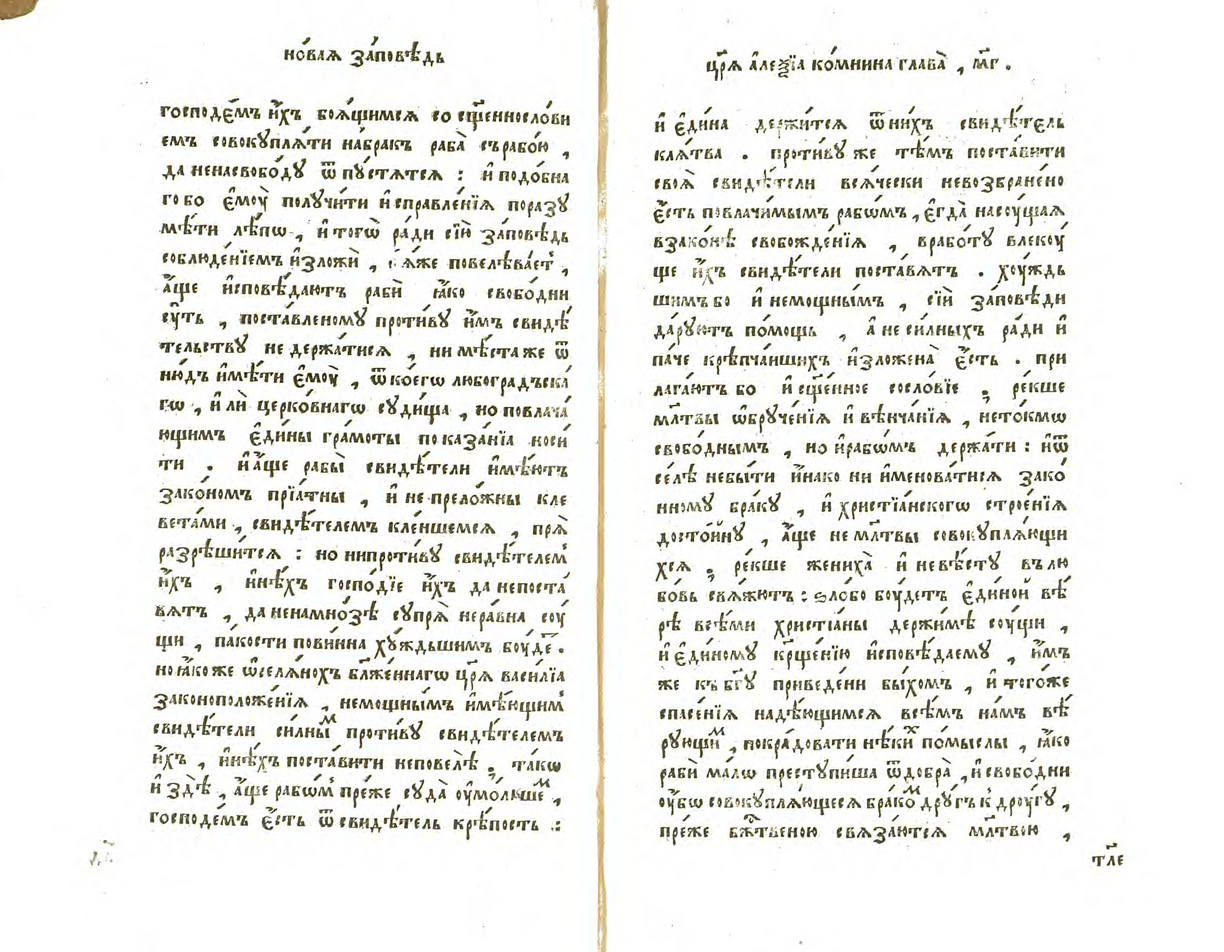 но́ваѧ за́повѣдь
господе́мъ и҆́хъ боѧ́щимсѧ со сщ҃еннослови
емъ совокуплѧ́ти на́бракъ раба̀ съ рабо́ю ,
да ненасвобо́ду ѿ пу́стѧтсѧ : и҆ подо́бна
го бо є҆моу̀ получи́ти и҆справле́нїѧ поразу
мѣ́ти лѣ́пѡ , и҆ тогѡ̀ ра́ди сїѝ за́повѣдь
соблюде́нїемъ и҆зложѝ , ꙗ҆́же повелѣва́ет ,
а҆́ще и҆сповѣ́даютъ рабѝ ꙗ҆́ко свобо́дни
су́ть , поста́вленому проти́ву и҆̀мъ свидѣ́
тельству не держа́тисѧ , ни мѣ́ста же ѿ
ню́дъ и҆мѣ́ти є҆моу̀ , ѿ ко́егѡ любогра́дъска
гѡ , и҆ лѝ церко́внагѡ суди́ща , но повлача́
ющимъ є҆ди́ны гра́моты по каза́нїа носи́
ти . и҆ а҆́ще рабы̀ свидѣ́тели и҆мѣ́ютъ
зако́номъ прїа́тны , и҆ не прело́жны кле
вета́ми , свидѣ́телемъ кле́ншемсѧ , прѧ̀
разрѣши́тсѧ : но нипроти́ву свидѣ́телем
и҆́хъ , и҆нѣ́хъ госпо́дїе и҆́хъ да непоста́
вѧтъ , да ненамно́зѣ супрѧ̀ нера́вна соу́
щи , па́кости пови́нна ху́ждьшимъ боу́де .
но ꙗ҆́коже ѡ҆ селѧ́нохъ бл҃же́ннагѡ цр҃ѧ̀ васи́лїа
законоположе́нїѧ , немощны́мъ и҆мѣ́ющим
свидѣ́тели си́лным проти́ву свидѣ́телемъ
и҆́хъ , и҆нѣ́хъ поста́вити неповелѣ̀ , та́кѡ
и҆ здѣ̀ , а҆́ще рабѡ́м пре́же суда̀ оу҆мо́лкшем ,
господе́мъ є҆́сть ѿ свидѣ́тель крѣ́пость .:
цр҃ѧ̀ а҆леѯі́а комнина глава̀ , м҃г .
и҆ є҆ди́на держи́тсѧ ѿ ни́хъ свидѣ́тель
клѧ́тва . проти́ву же тѣ́мъ поста́вити
своѧ̀ свидѣ́тели всѧ́чески невозбране́но
є҆́сть повлачи́мымъ рабѡ́мъ , є҆гда̀ насоу́щаѧ
взако́нѣ свобожде́нїѧ , врабо́ту влекоу́
ще и҆́хъ свидѣ́тели поста́вѧтъ . хоу́ждь
шимъ бо и҆ немощны́мъ , сїѝ за́повѣди
да́руютъ по́мощь , а҆ не си́лныхъ ра́ди и҆
па́че крѣпча́ишихъ и҆зложена̀ є҆́сть . при
лага́ютъ бо и҆ сщ҃е́нное сосло́вїе , ре́кше
мл҃твы ѡ҆бруче́нїѧ и҆ вѣнча́нїѧ , нето́кмѡ
свобо́днымъ , но и҆ рабѡ́мъ держа́ти : и҆ ѿ
се́лѣ небы́ти и҆́нако ни и҆менова́тисѧ зако́
нному бра́ку , и҆ христїа́нскогѡ строе́нїѧ
досто́йну , а҆́ще не мл҃твы совокуплѧ́ющи
хсѧ , ре́кше жениха̀ и҆ невѣ́сту въ лю
бо́вь свѧ́жютъ : ѕло́бо боу́детъ є҆ди́ной вѣ́
рѣ всѣ́ми христїа́ны держи́мѣ соу́щи ,
и҆ є҆ди́ному кр҃ще́нїю и҆сповѣ́даему , и҆́мъ
же къ бг҃у приведе́ни бы́хомъ , и҆ того́же
спасе́нїѧ надѣ́ющимсѧ всѣ́мъ на́мъ вѣ́
рующим , покра́довати нѣ́ких по́мыслы , ꙗ҆́ко
рабѝ ма́лѡ преступи́ша ѿ добра̀ , и҆ свобо́дни
оу҆́бѡ совокуплѧ́ющесѧ бра́ком дру́гъ к дроу́гу ,
пре́же бж҃твеною свѧза́ютсѧ мл҃твою ,
тл҃е